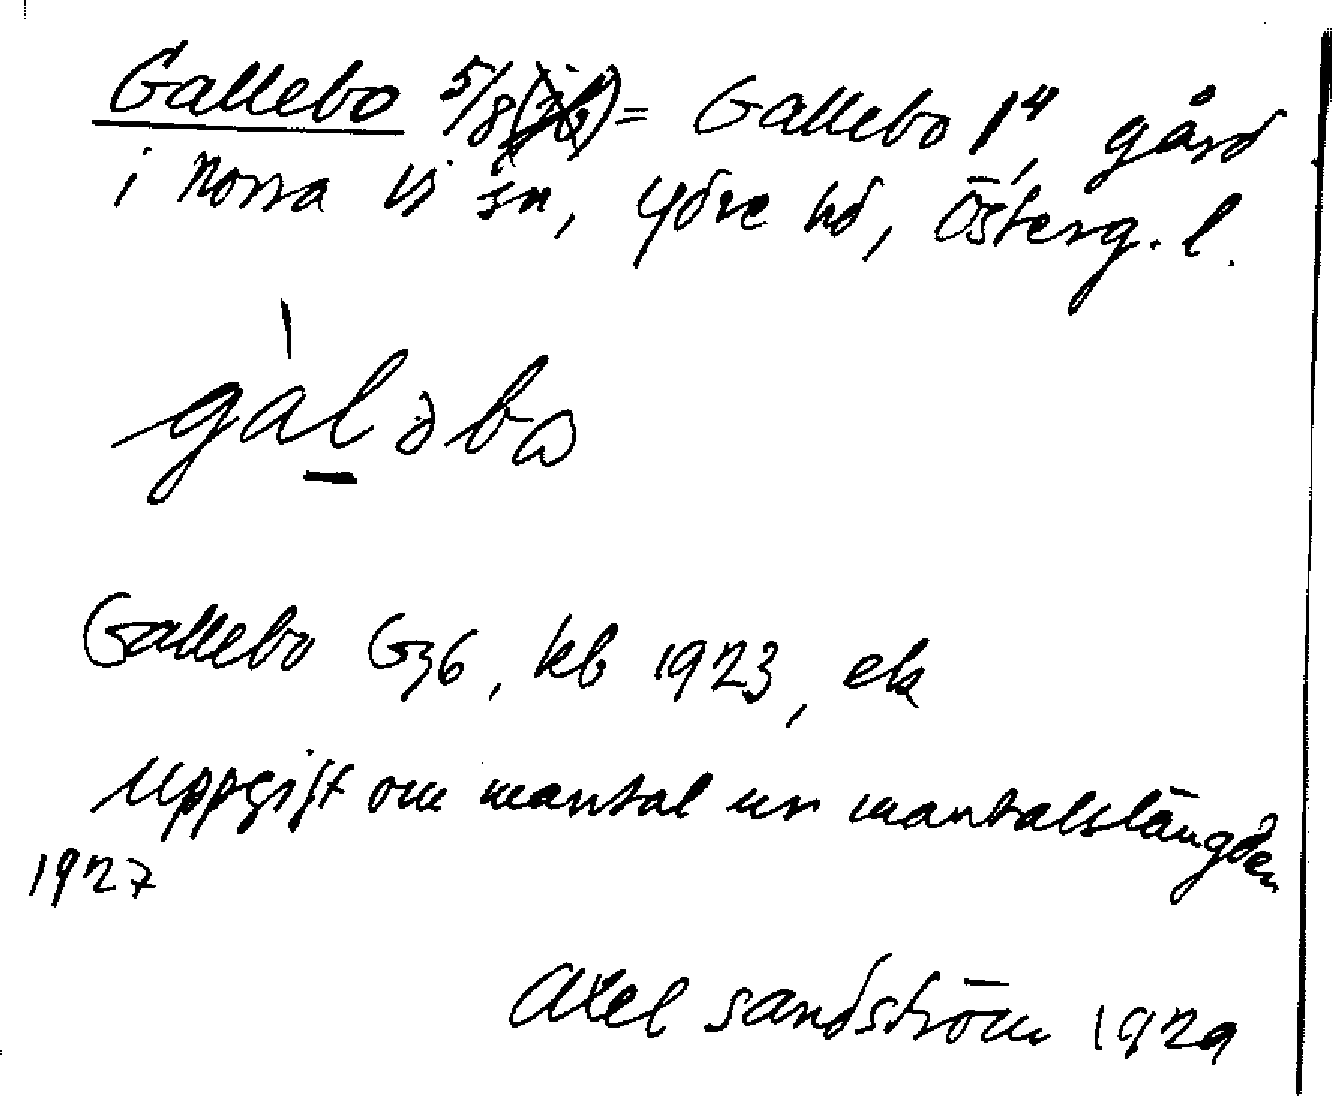 Gallebo 5/8 = Gallebo 1⁴, gård
i Norra Vi sn, Ydre hd, Österg. l.
gàləbo
Gallebo G36, kb 1923, ek
Uppgift om mantal ur mantalslängden
1927
Axel Sandström 1929